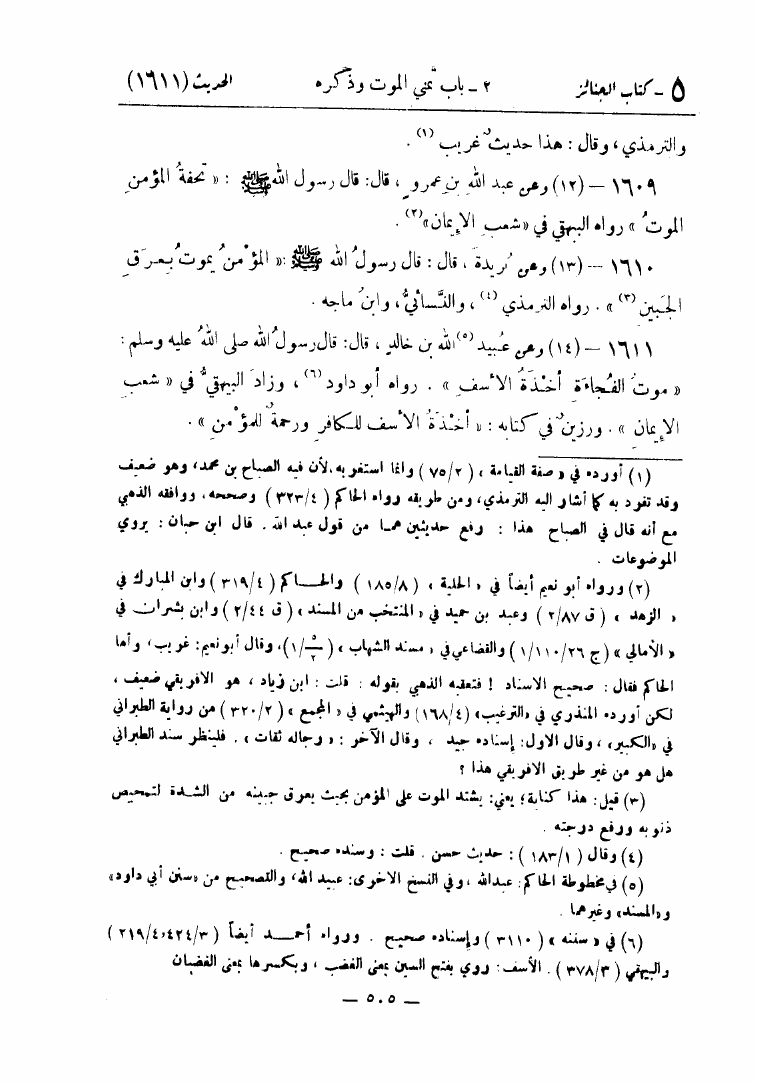 ٥ - كتاب الجنائز ٢ - باب تمني الموت وذكره الحديث (١٦١١)
والترمذي، وقال: هذا حديثٌ غريب (١).
١٦٠٩ - (١٢) وعن عبد اللهِ بنِ عمروٍ، قال: قال رسول الله ﷺ: « تحفةُ المؤمنِ
الموتُ » رواه البيهقي في «شعبِ الإِيمان»(٢).
١٦١٠ - (١٣) وعن بُريدةَ، قال: قال رسولُ الله ﷺ: « المؤْمنُ يموتُ بعرَقِ
الجَبينِ (٣) ». رواه الترمذي (٤)، والنَّسائيُّ، وابنُ ماجه.
١٦١١ - (١٤) وعن عُبيد (٥) الله بن خالدٍ، قال: قال رسولُ الله صلى اللهُ عليه وسلم:
« موتُ الفُجاءَةِ أخْذَةُ الأسفِ ». رواه أبو داود (٦)، وزادَ البيهقيُّ في « شعبِ
الإِيمان ». ورزينٌ في كتابه: « أخْذَةُ الأسف للكافرِ ورحمةٌ للمؤْمنِ ».
(١) أورده في « صفة القيامة » (٢/٧٥) وانما استغربه، لأن فيه الصباح بن محمد، وهو ضعيف
وقد تفرد به كما أشار اليه الترمذي، ومن طريقه رواه الحاكم (٤/٣٢٣) وصححه، ووافقه الذهبي
مع أنه قال في الصباح هذا: رفع حديثين هما من قول عبد الله. قال ابن حبان: يروي
الموضوعات.
(٢) ورواه أبو نعيم أيضاً في « الحلية » (٨/١٨٥) والحاكم (٤/٣١٩) وابن المبارك في
« الزهد » (ق ٢/٨٧) وعبد بن حميد في « المنتخب من المسند » (ق ٢/٤٤) وابن بشران في
« الأمالي » (ج ٢٦/١١٠/١) والقضاعي في « مسند الشهاب » (١/٥/٢)، وقال أبو نعيم: غريب، وأما
الحاكم فقال: صحيح الاسناد ! فتعقبه الذهبي بقوله: قلت: ابن زياد، هو الافريقي ضعيف،
لكن أورده المنذري في «الترغيب» (٤/١٦٨) والهيثمي في « المجمع » (٢/٣٢٠) من رواية الطبراني
في «الكبير»، وقال الاول: إسناده جيد، وقال الآخر: « رجاله ثقات ». فلينظر سند الطبراني
هل هو من غير طريق الافريقي هذا ؟
(٣) قيل: هذا كناية؛ يعني: يشتد الموت على المؤمن بحيث يعرق جبينه من الشدة لتمحيص
ذنوبه ورفع درجته.
(٤) وقال (١/١٨٣): حديث حسن. قلت: وسنده صحيح.
(٥) في مخطوطة الحاكم: عبدالله، وفي النسخ الاخرى: عبيد الله، والتصحيح من «سنن أبي داود»
و«المسند» وغيرهما.
(٦) في « سننه » (٣١١٠) وإسناده صحيح. ورواه أحمد أيضاً (٣/٤٢٤، ٤/٢١٩)
والبيهقي (٣/٣٧٨). الأسف: روي بفتح السين بمعنى الغضب، وبكسرها بمعنى الغضبان
— ٥٠٥ —